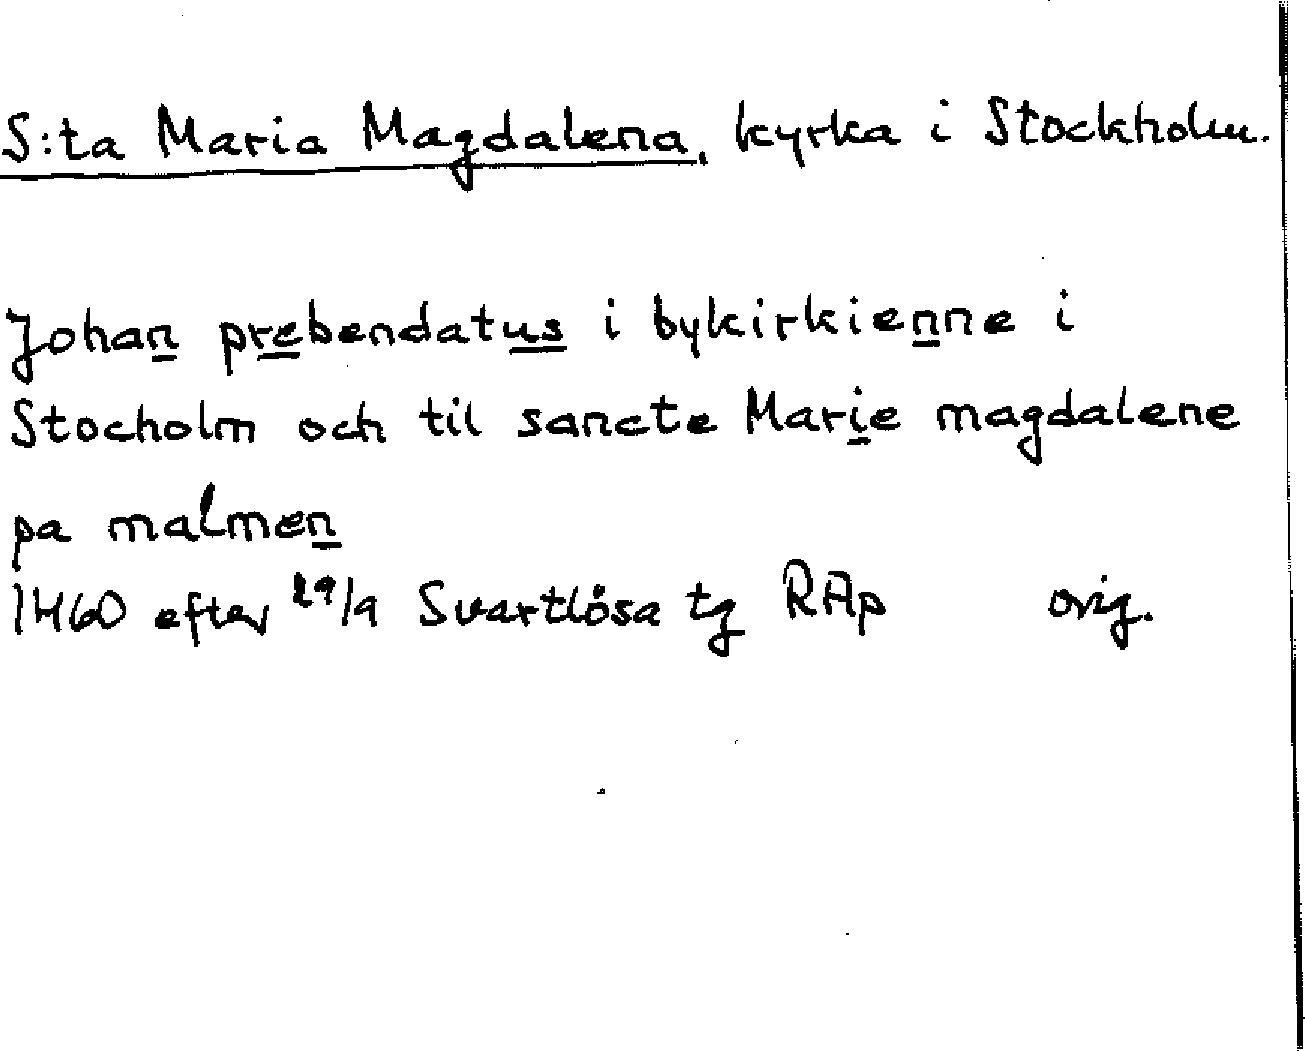 S:ta Maria Magdalena, kyrka i Stockholm.
Johan prebendatus i bykirkienne i
Stocholm och til sancte Marie magdalene
pa malmen
1460 efter 29/9 Svartlösa tg RAp orig.